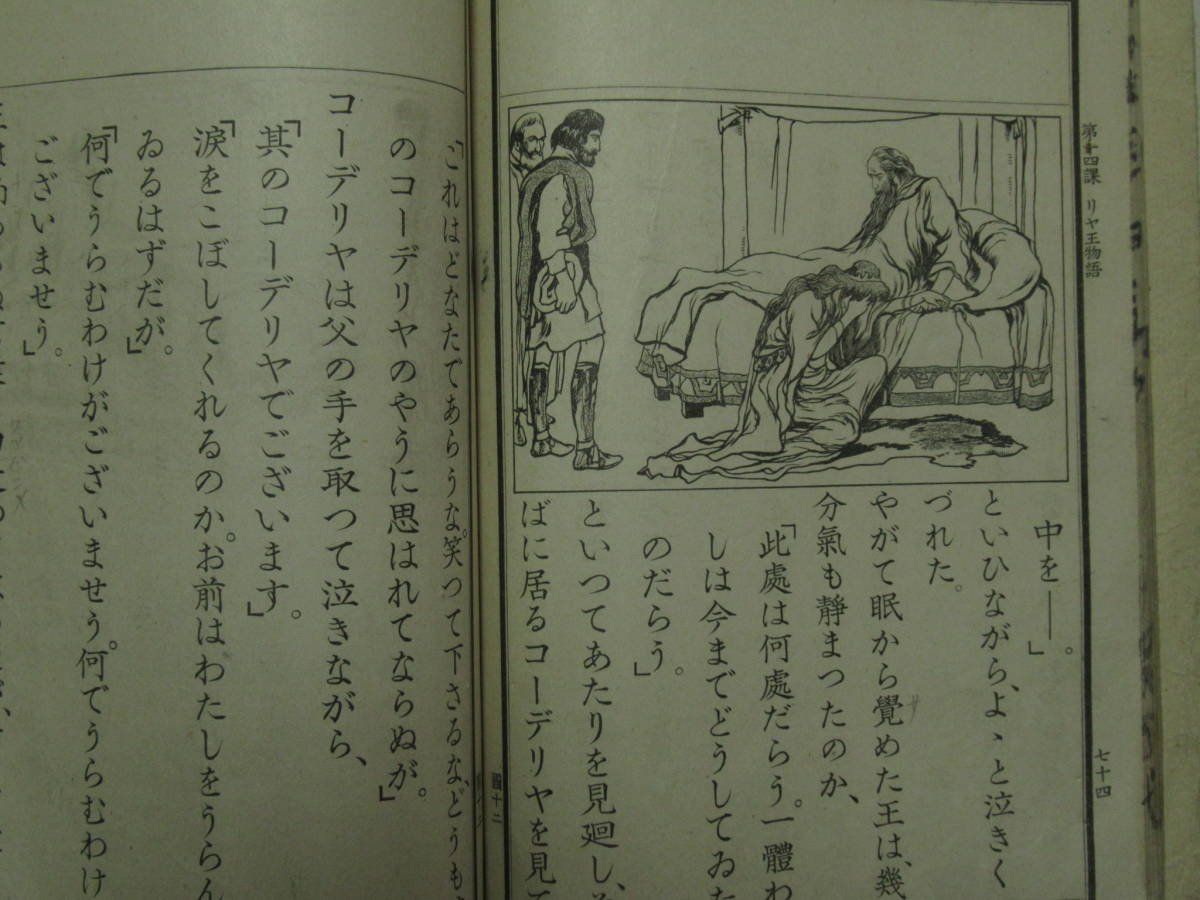 第十四課 リヤ王物語
七十四
中を――。」
といひながら、よゝと泣きく
づれた。
やがて眠から覺めた王は、幾
分氣も靜まつたのか、
「此處は何處だらう。一體わ
しは今までどうしてゐた
のだらう。」
といつてあたりを見廻し、そ
ばに居るコーデリヤを見て
「これはどなたであらうな。笑つて下さるな、どうも
のコーデリヤのやうに思はれてならぬが。」
コーデリヤは父の手を取つて泣きながら、
「其のコーデリヤでございます。」
「涙をこぼしてくれるのか。お前はわたしをうらん
ゐるはずだが。」
「何でうらむわけがございませう。何でうらむわけ
ございませう。」